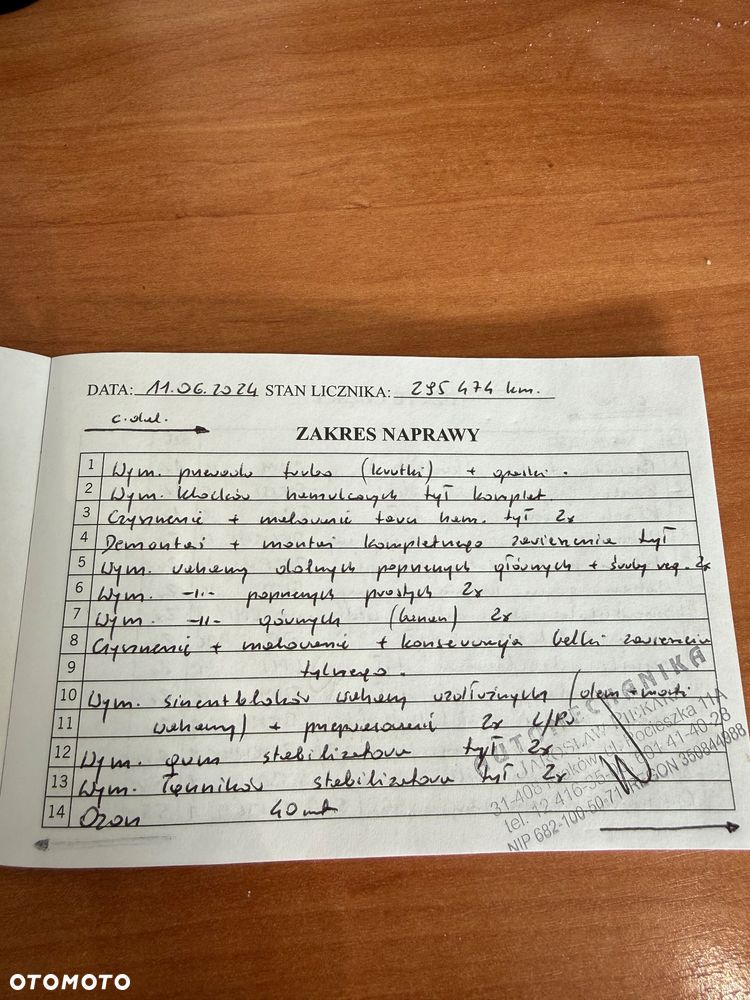 DATA: 11.06.2024 STAN LICZNIKA: 295 474 km.
c.d.
ZAKRES NAPRAWY
1 Wym. przewodu turbo (krótki) + opaski.
2 Wym. klocków hamulcowych tył komplet
3 Czyszczenie + malowanie tarcz ham. tył 2x
4 Demontaż + montaż kompletnego zawieszenia tył
5 Wym. wahaczy dolnych poprzecznych głównych + śruby reg. 2x
6 Wym. -11- poprzecznych prostych 2x
7 Wym. -11- górnych (banan) 2x
8 Czyszczenie + malowanie + konserwacja belki zawieszenia
9 tylnego.
10 Wym. silentbloków wahaczy wzdłużnych (dem + mont.
11 wahaczy) + prasowanie 2x L/P
12 Wym. gum stabilizatora tył 2x
13 Wym. łączników stabilizatora tył 2x
14 Ozon 40 min
AUTOMECHANIKA
JAROSŁAW
31-408 Kraków, ul. Pocieszka 11A
tel. 12 416-35- 601 41-40-28
NIP 682-100-50-71 REGON 350844988
OTOMOTO